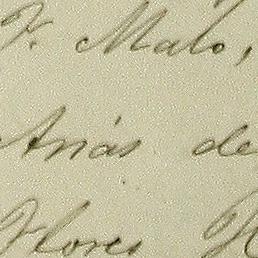 F. Malo,
Arias de
Flores